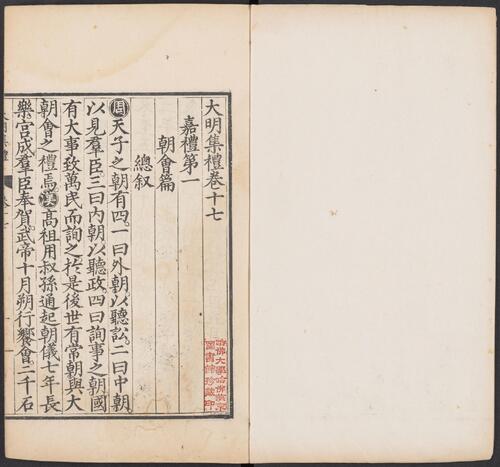 大明集禮卷十七
嘉禮第一
朝會篇
總叙
周天子之朝有四一曰外朝以聽訟二曰中朝
以見羣臣三曰内朝以聽政四曰詢事之朝國
有大事致萬民而詢之於是後世有常朝與大
朝會之禮焉漢高祖用叔孫通起朝儀七年長
樂宮成羣臣奉賀武帝十月朔行饗會二千石
大明集禮 卷十七
哈佛大學哈佛燕京
圖書館珍藏印